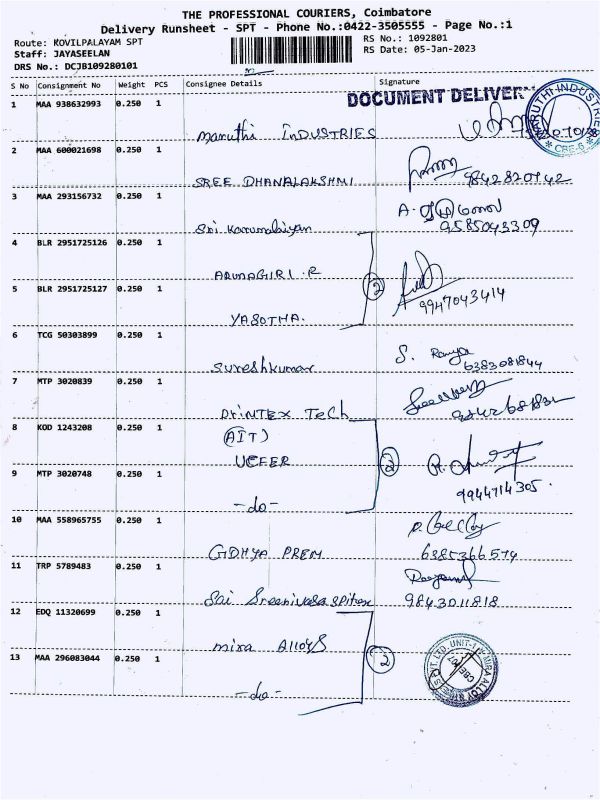 THE PROFESSIONAL COURIERS, Coimbatore
Delivery Runsheet - SPT - Phone No.:0422-3505555 - Page No.:1
Route: KOVILPALAYAM SPT
RS No.: 1092801
Staff: JAYASEELAN
RS Date: 05-Jan-2023
DRS No.: DCJB109280101
S No Consignment No Weight PCS Consignee Details Signature
DOCUMENT DELIVERY
1 MAA 938632993 0.250 1
Maruthi INDUSTRIES
2 MAA 600021698 0.250 1
SREE DHANALAKSHMI 9842820742
3 MAA 293156732 0.250 1
Sri Karumalaiyan 9585043309
4 BLR 2951725126 0.250 1
ARUNAGIRI.R
5 BLR 2951725127 0.250 1
2
9947043414
YASOTHA.
6 TCG 50303899 0.250 1
S. Ramya
Sureshkumar 6383081844
7 MTP 3020839 0.250 1
PRINTEX Tech
8 KOD 1243208 0.250 1
(AIT)
UCFER
2
9 MTP 3020748 0.250 1
9944714305.
-do-
10 MAA 558965755 0.250 1
PREM 6385366574
11 TRP 5789483 0.250 1
Sai Sreenivasa 9843011818
12 EDQ 11320699 0.250 1
mira Alloys
13 MAA 296083044 0.250 1
2
-do-